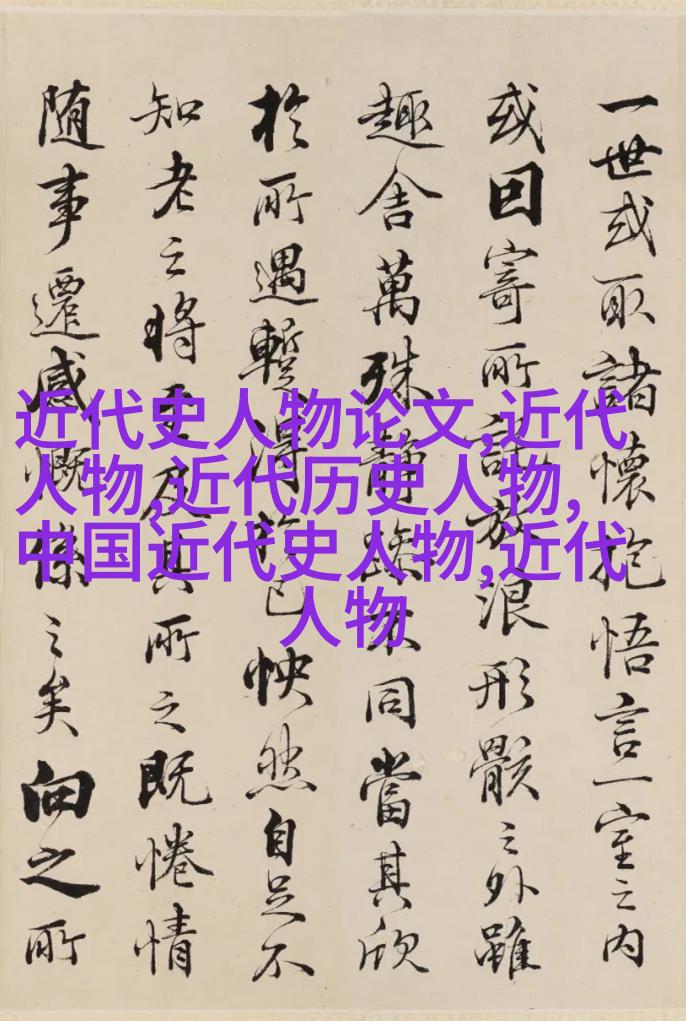 一世或取諸懷抱悟言一室之内
或因寄所託放浪形骸之外雖
趣舍萬殊静躁不同當其欣
於所遇蹔得於己怏然自足不
知老之將至及其所之既惓情
随事遷感慨係之矣向之所
近代史人物论文,近代
人物,近代历史人物,
中国近代史人物,近代
人物